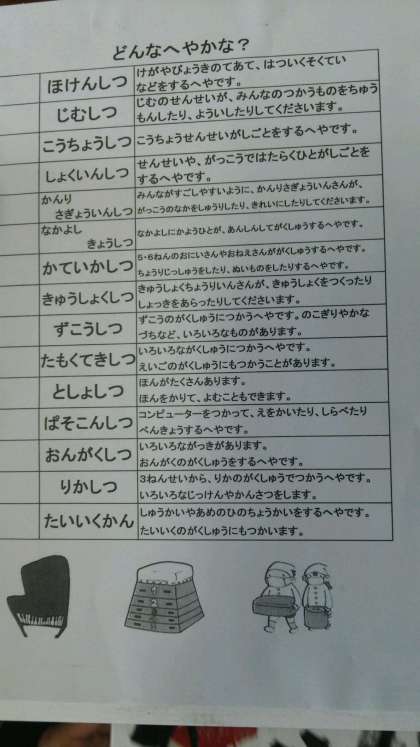 どんなへやかな？
ほけんしつ
けがやびょうきのてあて、はついくそくてい
などをするへやです。
じむしつ
じむのせんせいが、みんなのつかうものをちゅう
もんしたり、よういしたりしてくださいます。
こうちょうしつ
こうちょうせんせいがしごとをするへやです。
しょくいんしつ
せんせいや、がっこうではたらくひとがしごとを
するへやです。
かんり
さぎょういんしつ
みんながすごしやすいように、かんりさぎょういんさんが、
がっこうのなかをしゅうりしたり、きれいにしたりしてくださいます。
なかよし
きょうしつ
なかよしにかようひとが、あんしんしてがくしゅうするへやです。
かていかしつ
5・6ねんのおにいさんやおねえさんががくしゅうするへやです。
ちょうりじっしゅうをしたり、ぬいものをしたりするへやです。
きゅうしょくしつ
きゅうしょくちょうりいんさんが、きゅうしょくをつくったり
しょっきをあらったりしてくださいます。
ずこうしつ
ずこうのがくしゅうにつかうへやです。のこぎりやかな
づちなど、いろいろなものがあります。
たもくてきしつ
いろいろながくしゅうにつかうへやです。
えいごのがくしゅうにもつかうことがあります。
としょしつ
ほんがたくさんあります。
ほんをかりて、よむこともできます。
ぱそこんしつ
コンピューターをつかって、えをかいたり、しらべたり
べんきょうするへやです。
おんがくしつ
いろいろながっきがあります。
おんがくのがくしゅうをするへやです。
りかしつ
3ねんせいから、りかのがくしゅうでつかうへやです。
いろいろなじっけんやかんさつをします。
たいいくかん
しゅうかいやあめのひのちょうかいをするへやです。
たいいくのがくしゅうにもつかいます。